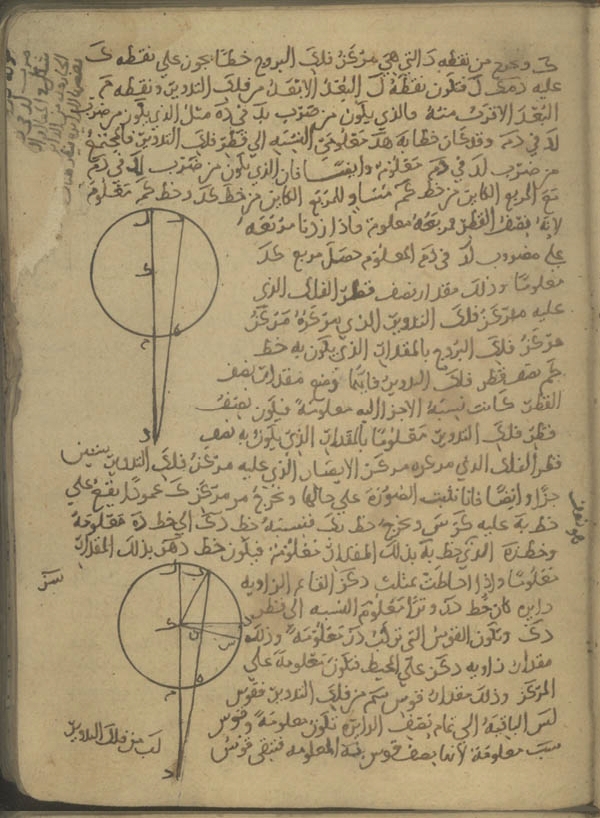 ك ونخرج من نقطه د التي هي مركز فلك البروج خطا يجوز علي نقطه ك
عليه دمكل فتكون نقطة ل البعد الابعد من فلك التدوير ونقطه م
البعد الاقرب منه والذي يكون من ضرب بد في ده مثل الذي يكون من ضرب
لد في دم وقد كان خطا به هد معلومي النسبه الي قطر فلك التدوير فالمجتمع
من ضرب لد في دم معلوم وايضا فان الذي يكون من ضرب لد في دم
مع المربع الكاين من خط كم مساو للمربع الكاين من خط كد وخط كم معلوم
لانه نصف القطر فمربعه معلوم فاذا زدنا مربعه
علي مضروب لد في دم المعلوم حصل مربع كد
معلوما وذلك مقدار نصف قطر الفلك الذي
عليه مركز فلك التدوير الذي مركزه مركز
مركز فلك البروج بالمقدار الذي يكون به خط
كم نصف قطر فلك التدوير فايما وضع مقدار نصف
القطر كانت نسبة الاخر اليه معلومة فيكون نصف
قطر فلك التدوير معلوما بالمقدار الذي يكون به نصف
قطر الفلك الذي مركزه مركز الابصار الذي عليه مركز فلك التدوير ستين
جزا وايضا فانا نثبت الصورة علي حالها ونخرج من مركز ك عمودا يقع علي
خط به عليه كز س ونخرج خط بك فنسبة خط دك الي خط ده معلومة
وخط زه الذي خط به بذلك المقدار معلوم فيكون خط دهز بذلك المقدار
معلوما واذا احاطت بمثلث دكز القائم الزاويه
دايره كان خط دز وترا معلوم النسبه الي قطر
دك وتكون القوس التي تركب دز معلومة وذلك
مقدار زاويه دكز علي المحيط فتكون معلومة علي
المركز وذلك مقدار قوس سم من فلك التدوير فقوس
لبس الباقيه الي تمام نصف الدايره تكون معلومة وقوس
سب معلومة لانها نصف قوس به المعلومة فتبقي قوس
لب من فلك التدوير